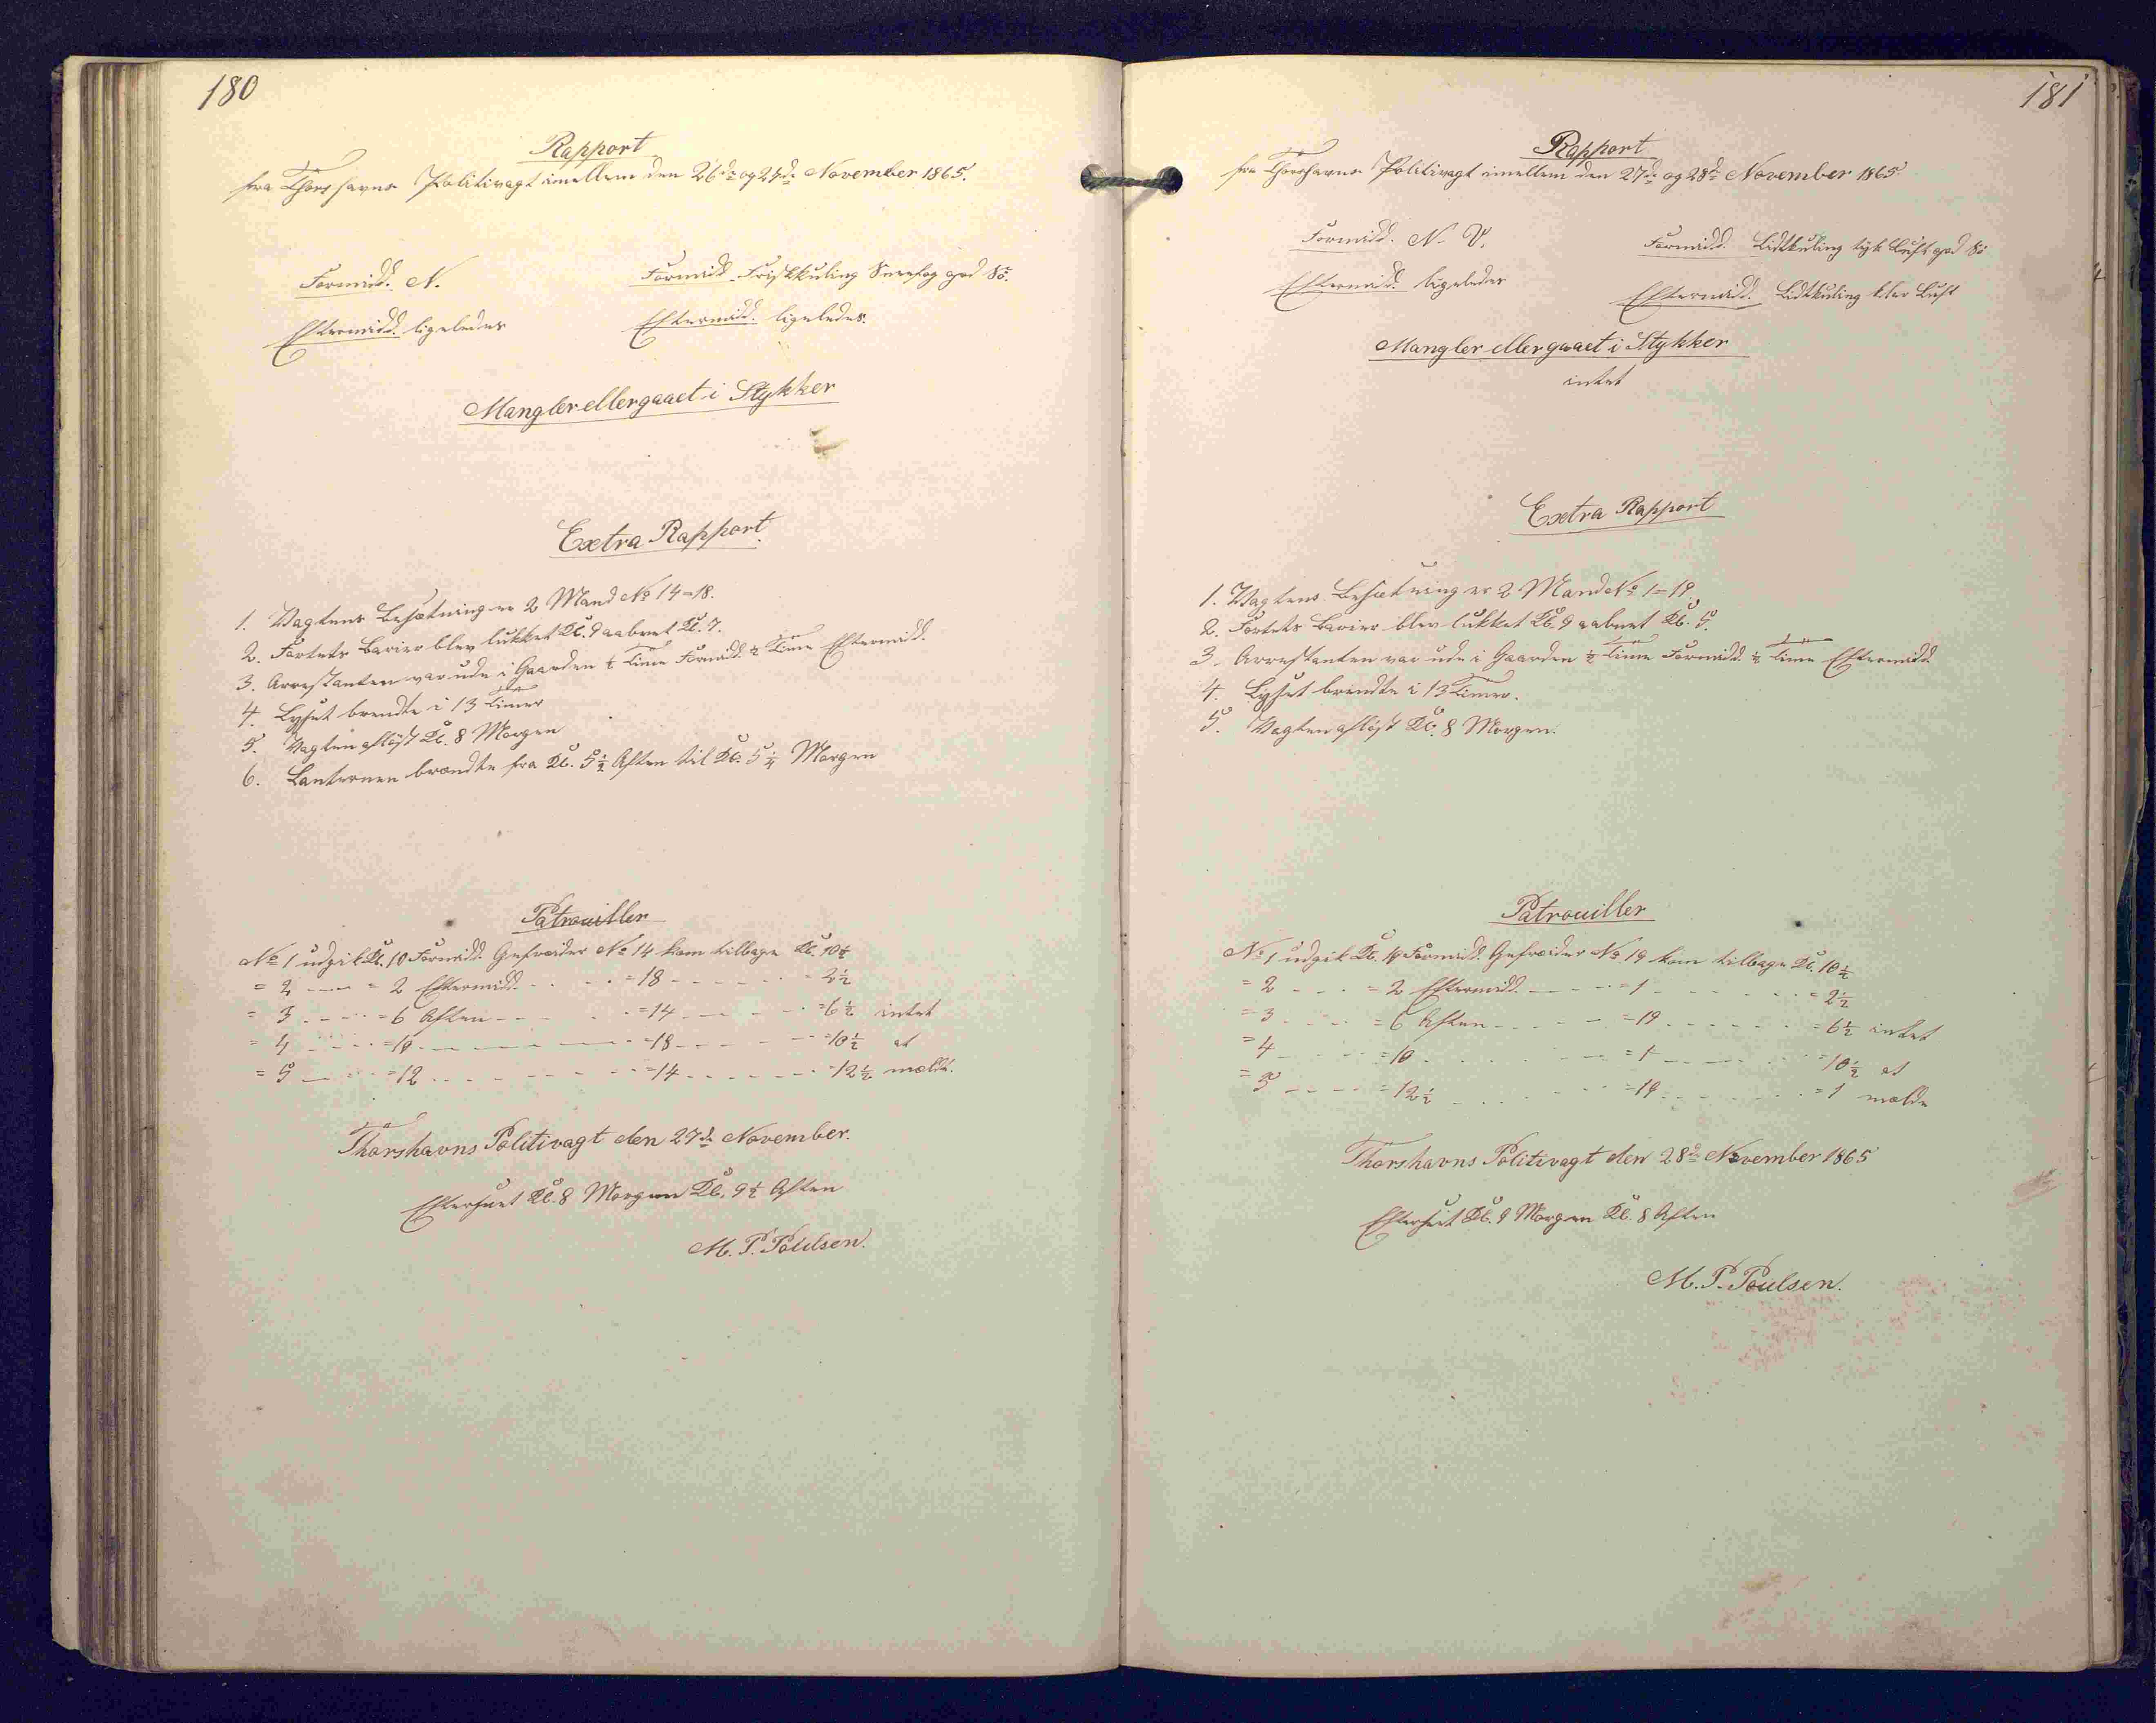 180
Rapport
fra Thorshavns Politivagt imellem den 26de og 27de November 1865.
Formidd. N.
Formidd. Friskkuling Sneefog god Sö.
Eftermidd. ligeledes
Eftermidd. ligeledes.
Mangler eller gaaet i Stykker
Extra Rapport.
1. Vagtens Besætning er 2 Mand No 14=18.
2. Fortets Barier blev lukket Kl. 9 aabnet Kl. 7.
3. Arrestanten var ude i Gaarden ½ Time Formidd. ½ Time Eftermidd.
4. Lyset brendte i 13 Timer
5. Vagten aflöst Kl. 8 Morgen
6. Lanternen brændte fra Kl. 5½ Aften til Kl. 5¼ Morgen
Patrouiller
No 1 udgik Kl. 10 Formidd. Gefreider No 14 kom tilbage Kl. 10½
= 2 - - - = 2 Eftermidd. - - - =18 - - - - = 2½
= 3 - - - =6 Aften - - - =14 - - - =6½ intet
= 4 - - - =10 - - - - =18 - - - =10½ at
= 5 - - - =12 - - - - =14 - - - =12½ melde.
Thorshavns Politivagt den 27de November.
Efterseet Kl. 8 Morgen Kl. 9½ Aften
M. P. Poulsen.
181
Rapport
fra Thorshavns Politivagt imellem den 27de og 28de November 1865
Formidd. N. V.
Formidd. Lidtkuling tyk Luft god Sö
Eftermidd. ligeledes
Eftermidd. Lidtkuling klar Luft
Mangler eller gaaet i Stykker
intet
Extra Rapport
1. Vagtens Besætning er 2 Mand No 1=19.
2. Fortets Barier blev lukket Kl. 9 aabnet Kl. 5.
3. Arrestanten var ude i Gaarden ½ Time Formidd. ½ Time Eftermidd
4. Lyset brendte i 13 Timer.
5. Vagten aflöst Kl. 8 Morgen.
Patrouiller
No 1 udgik Kl. 10 Formidd. Gefreider No 19 kom tilbage Kl. 10½
= 2 - - - = 2 Eftermidd. - - - =1 - - - - = 2½
= 3 - - - =6 Aften - - - =19 - - - =6½ intet
= 4 - - - =10 - - - - =1 - - - =10½ at
= 5 - - - =12½ - - - =19 - - - =1 melde
Thorshavns Politivagt den 28de November 1865
Efterseet Kl. 9 Morgen Kl. 8 Aften
M. P. Poulsen.